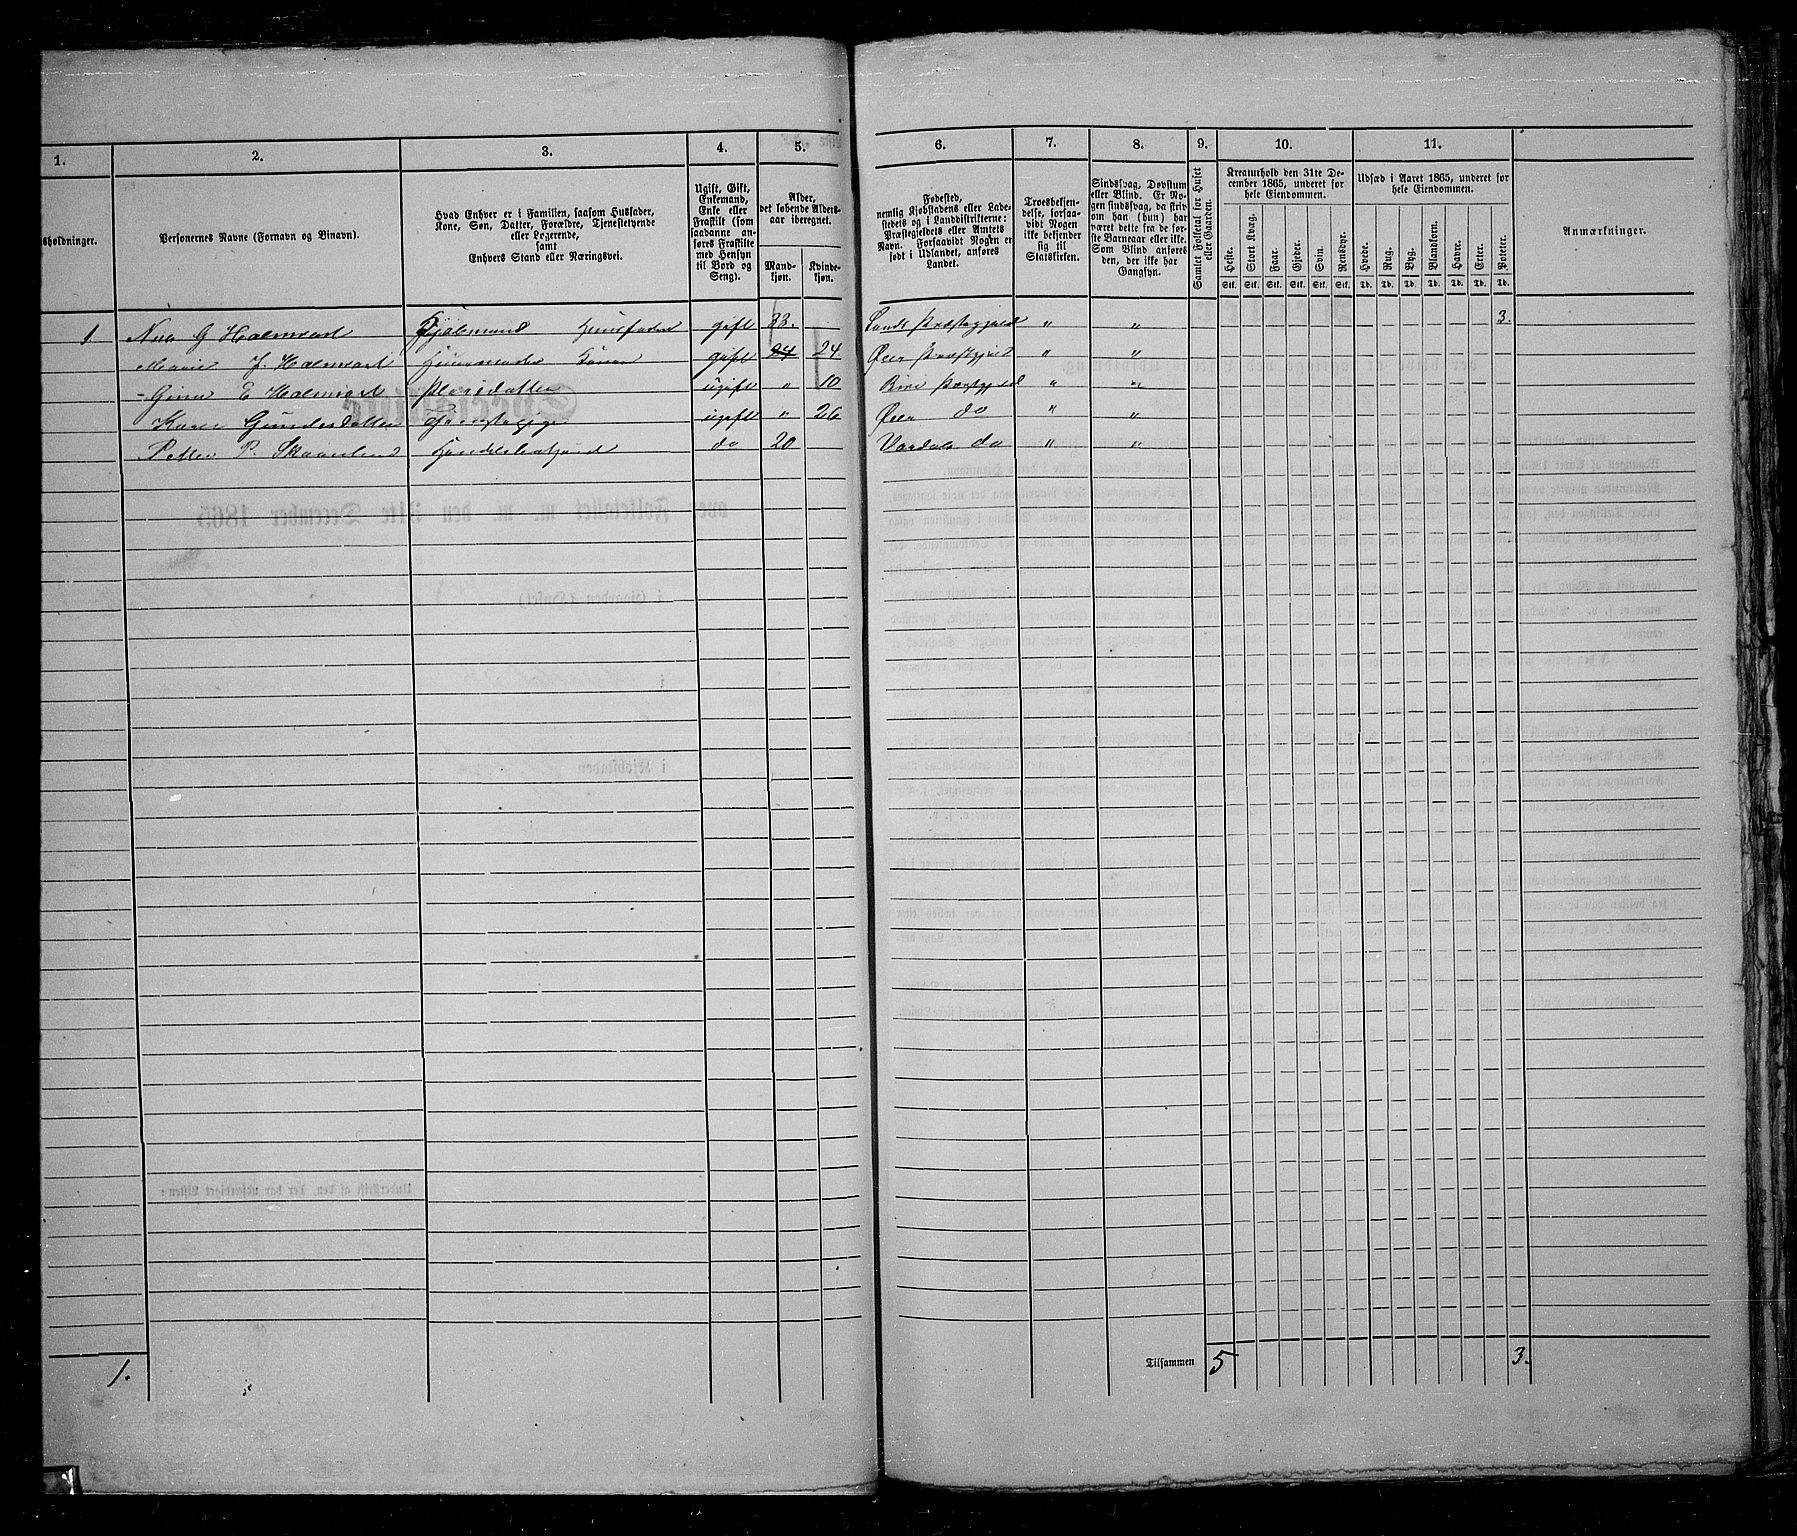 1. 2. 3. 4. 5. 6. 7. 8. 9. 10. 11.
sholdninger.
Personernes Navne (Fornavn og Binavn).
Hvad Enhver er i Familien, saasom Husfader,
Kone, Søn, Datter, Forældre, Tjenestetyende
eller Logerende,
samt
Enhvers Stand eller Næringsvei.
Ugift, Gift,
Enkemand,
Enke eller
Fraskilt (som
saadanne an-
føres Fraskilte
med Hensyn
til Bord og
Seng).
Alder,
det løbende Alders-
aar iberegnet.
Mand-
kjøn.
Kvinde-
kjøn.
Fødested,
nemlig Kjøbstadens eller Lade-
stedets og i Landdistrikterne:
Præstegjeldets eller Amtets
Navn. Forsaavidt Nogen er
født i Udlandet, anføres
Landet.
Troesbekjen-
delse, forsaa-
vidt Nogen
ikke bekjender
sig til
Statskirken.
Sindssvag, Døvstum
eller Blind. Er No-
gen sindssvag, da skriv
om han (hun) har
været dette fra de før-
ste Barneaar eller ikke.
Som Blind anføres
den, der ikke har
Gangsyn.
Samlet Folketal for Huset
eller Gaarden.
Kreaturhold den 31te De-
cember 1865, underet for
hele Eiendommen.
Heste. Stort Kvæg. Faar. Gjeder. Svin. Rensdyr.
Stk. Stk. Stk. Stk. Stk. Stk.
Udsæd i Aaret 1865, underet for
hele Eiendommen.
Hvede. Rug. Byg. Blankorn. Havre. Erter. Poteter.
Td. Td. Td. Td. Td. Td. Td.
Anmærkninger.
1 Nils G Halmrast Husfader gift 33. Lands Præstegjeld " " 3.
Marie J. Halmrast Huusmoder Kone gift 24 24 Øier Præstgjeld " "
Gina E Halmrast Pleiedatter ugift " 10 Biri Præstgjeld " "
Karen Gundersdatter Tjenestepige ugift " 26 Øier do " "
Petter P. Skaanlund Handelsbetjent do 20 Vardal do " "
1. Tilsammen 5 3.